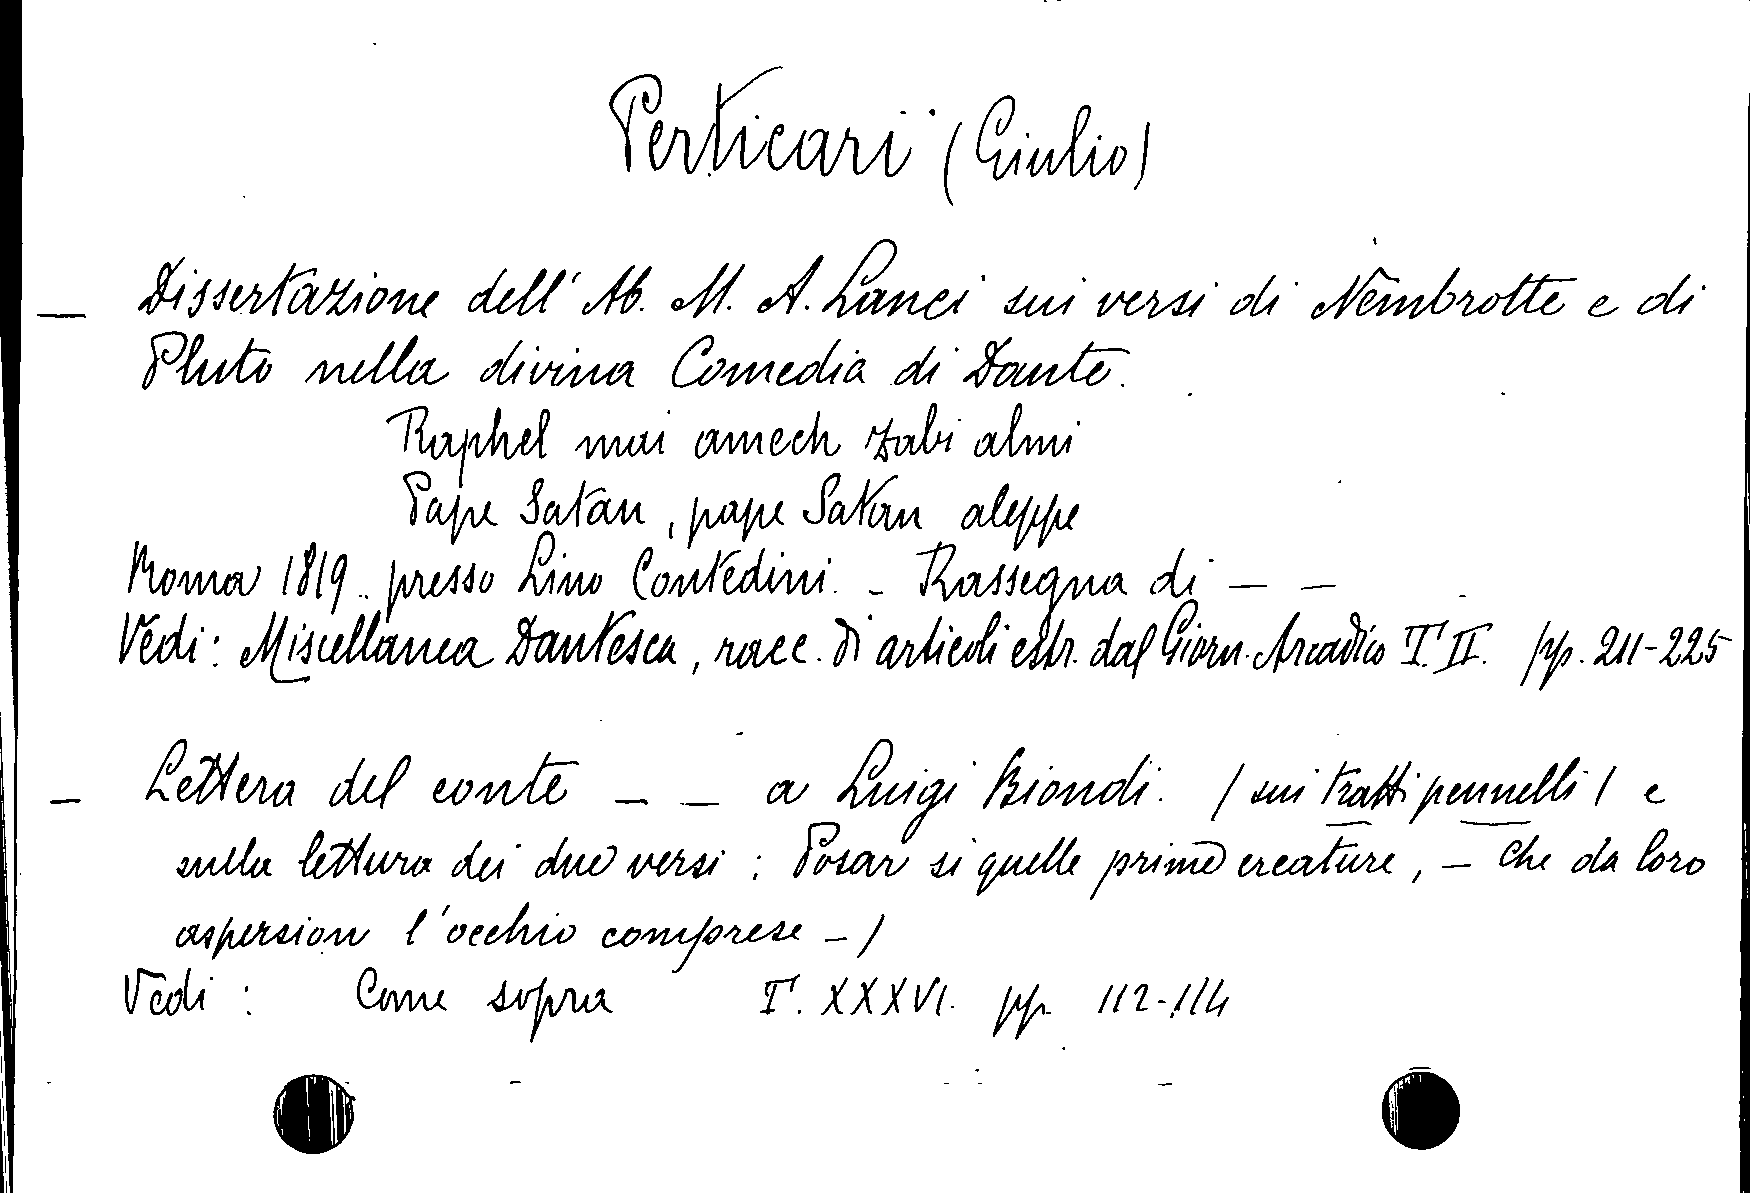 Perticari (Giulio)
— Dissertazione dell' Ab. M. A. Lanci sui versi di Nembrotte e di
Pluto nella divina Comedia di Dante.
Raphel mai amech zabi almi
Pape Satan, pape Satan aleppe
Roma 1819.. presso Lino Contedini. - Rassegna di — —
Vedi: Miscellanea Dantesca, racc. di articoli estr. dal Giorn. Arcadico T. II. pp. 211-225
— Lettera del conte — — a Luigi Biondi. (sui tratti pennelli) e
sulla lettura dei due versi: Posarsi quelle prime creature, — Che da loro
aspersion l'occhio comprese —)
Vedi: Come sopra T. XXXVI. pp. 112-114